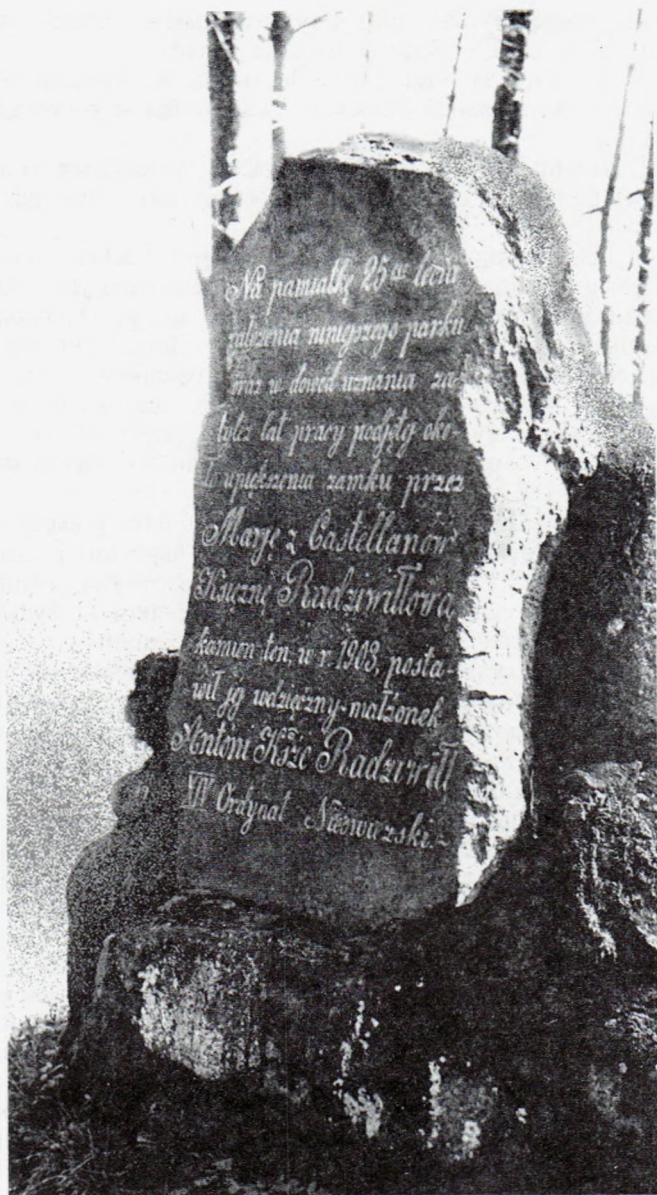 Na pamiatkę 25cio lecia
założenia niniejszego parku
oraz w dowód uznania za
tyleż lat pracy podjętej oko-
ło upiększenia zamku przez
Maryę z Castellanów
Księżnę Radziwiłłową
kamień ten, w r. 1903, posta-
wił jej wdzięczny małżonek
Antoni Kśże Radziwiłł
XIV Ordynat Nieświezski.